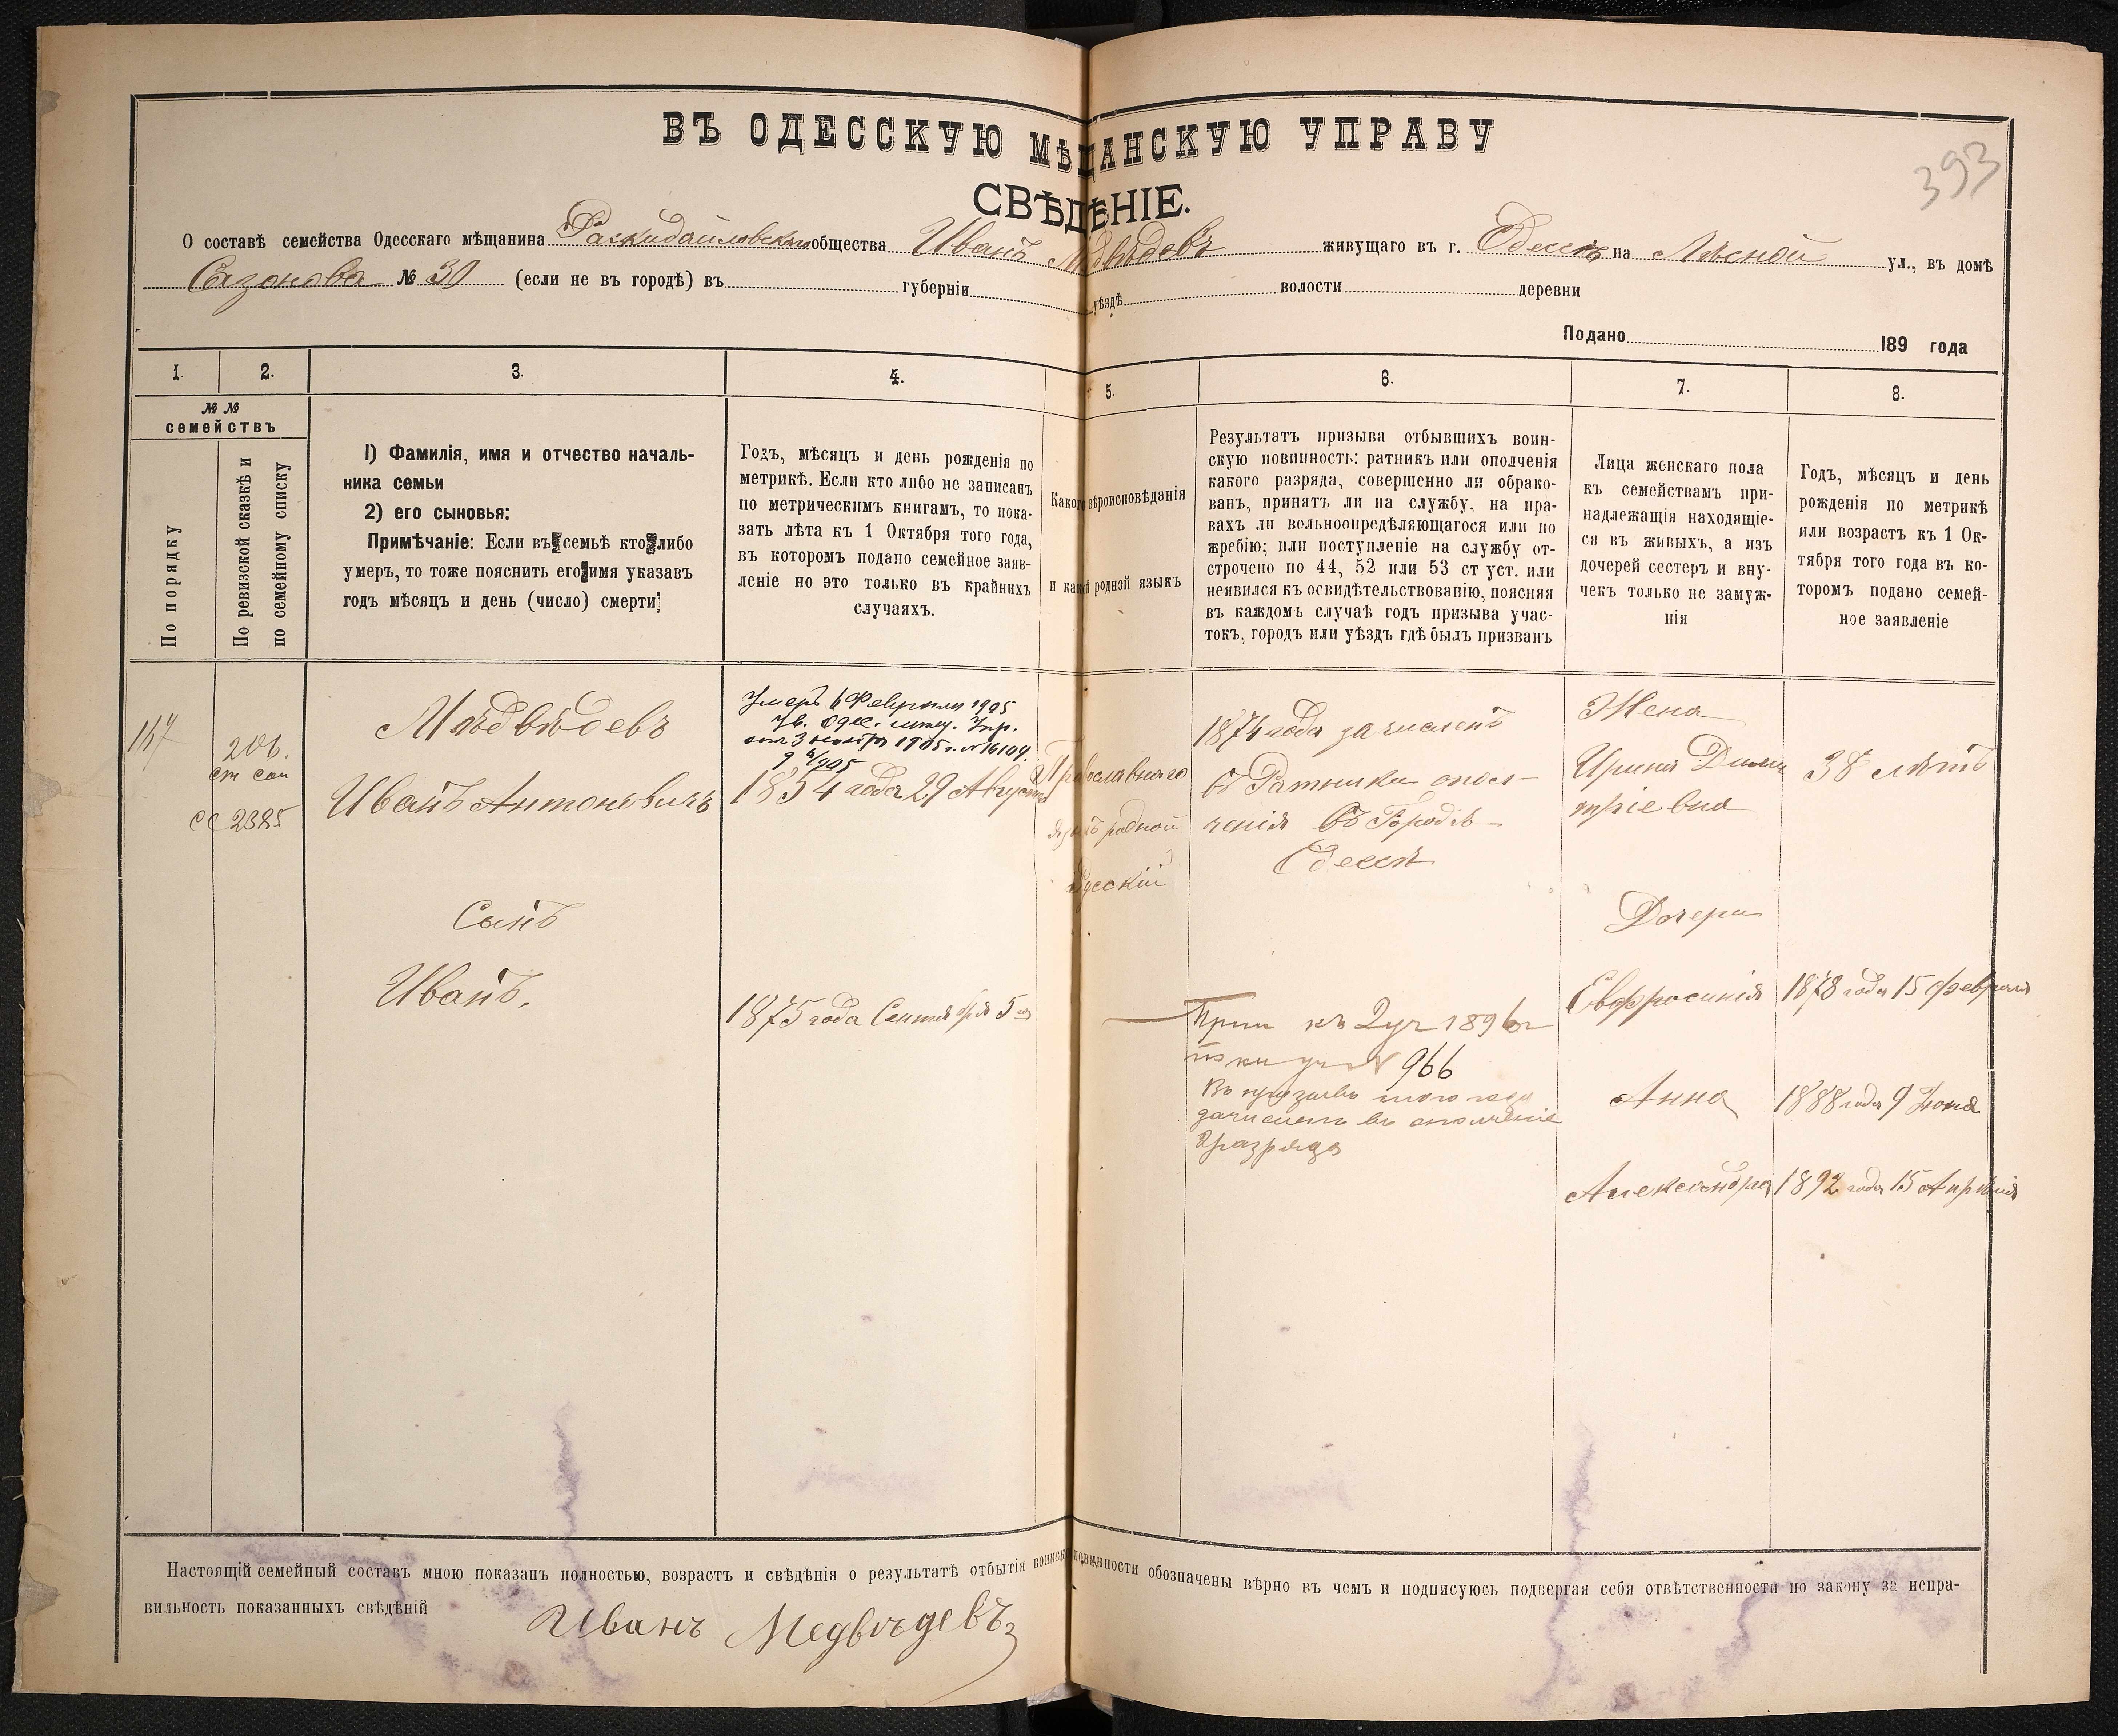 ВЪ ОДЕССКУЮ МѢЩАНСКУЮ УПРАВУ
393
СВѢДѢНІЕ.
О составѣ семейства Одесскаго мѣщанина Раскидайловскаго общества Иванъ Мѣдвѣдевъ живущаго въ г. Одессѣ на Лѣсной ул., въ домѣ
Сазонова № 30 (если не въ городѣ) въ губерніи уѣздѣ волости деревни
Подано 189 года
1. 2. 3. 4. 5. 6. 7. 8.
№ №
семействъ
По порядку
По ревизской сказкѣ и
по семейному списку
1) Фамилія, имя и отчество началь-
ника семьи
2) его сыновья:
Примѣчаніе: Если въ семьѣ кто либо
умеръ, то тоже пояснить его имя указавъ
годъ мѣсяцъ и день (число) смерти
Годъ, мѣсяцъ и день рожденія по
метрикѣ. Если кто либо не записанъ
по метрическимъ книгамъ, то пока-
зать лѣта къ 1 Октября того года,
въ которомъ подано семейное заяв-
леніе но это только въ крайнихъ
случаяхъ.
Какого вѣроисповѣданія
и какой родной языкъ
Результатъ призыва отбывшихъ воин-
скую повинность: ратникъ или ополченія
какого разряда, совершенно ли обрако-
ванъ, принятъ ли на службу, на пра-
вахъ ли вольноопредѣляющагося или по
жребію; или поступленіе на службу от-
строчено по 44, 52 или 53 ст уст. или
неявился къ освидѣтельствованію, поясняя
въ каждомъ случаѣ годъ призыва учас-
токъ, городъ или уѣздъ гдѣ былъ призванъ
Лица женскаго пола
къ семействамъ при-
надлежащія находящіе-
ся въ живыхъ, а изъ
дочерей сестеръ и вну-
чекъ только не замуж-
нія
Годъ, мѣсяцъ и день
рожденія по метрикѣ
или возрастъ къ 1 Ок-
тября того года въ ко-
торомъ подано семей-
ное заявленіе
147
206.
сс 2385
Мѣдвѣдевъ
Иванъ Антоновичъ
Умеръ 6 Февраля 1905
Ув. Одес. мѣщ. Упр.
1905 г. № 16104.
1854 года 29 Августа
Православнаго
языкъ родной
Русскій
1874 года зачисленъ
въ Ратники опол-
ченія въ Городѣ
Одессѣ
Жена
Ирина Дими
тріевна
38 лѣтъ
Сынъ
Иванъ.
1875 года Сентября 5 го
Прип къ 2 уч 1896 г
966
Въ призывъ того года
зачисленъ въ ополченіе
2 разряда
Дочери
Евфросинія 1878 года 15 Февраля
Анна 1888 года 9 Іюня
Александра 1892 года 15 Апрѣля
Настоящій семейный составъ мною показанъ полностью, возрастъ и свѣдѣнія о результатѣ отбытія воинской повинности обозначены вѣрно въ чемъ и подписуюсь подвергая себя отвѣтственности по закону за непра-
вильность показанныхъ свѣдѣній
Иванъ Медвѣдевъ